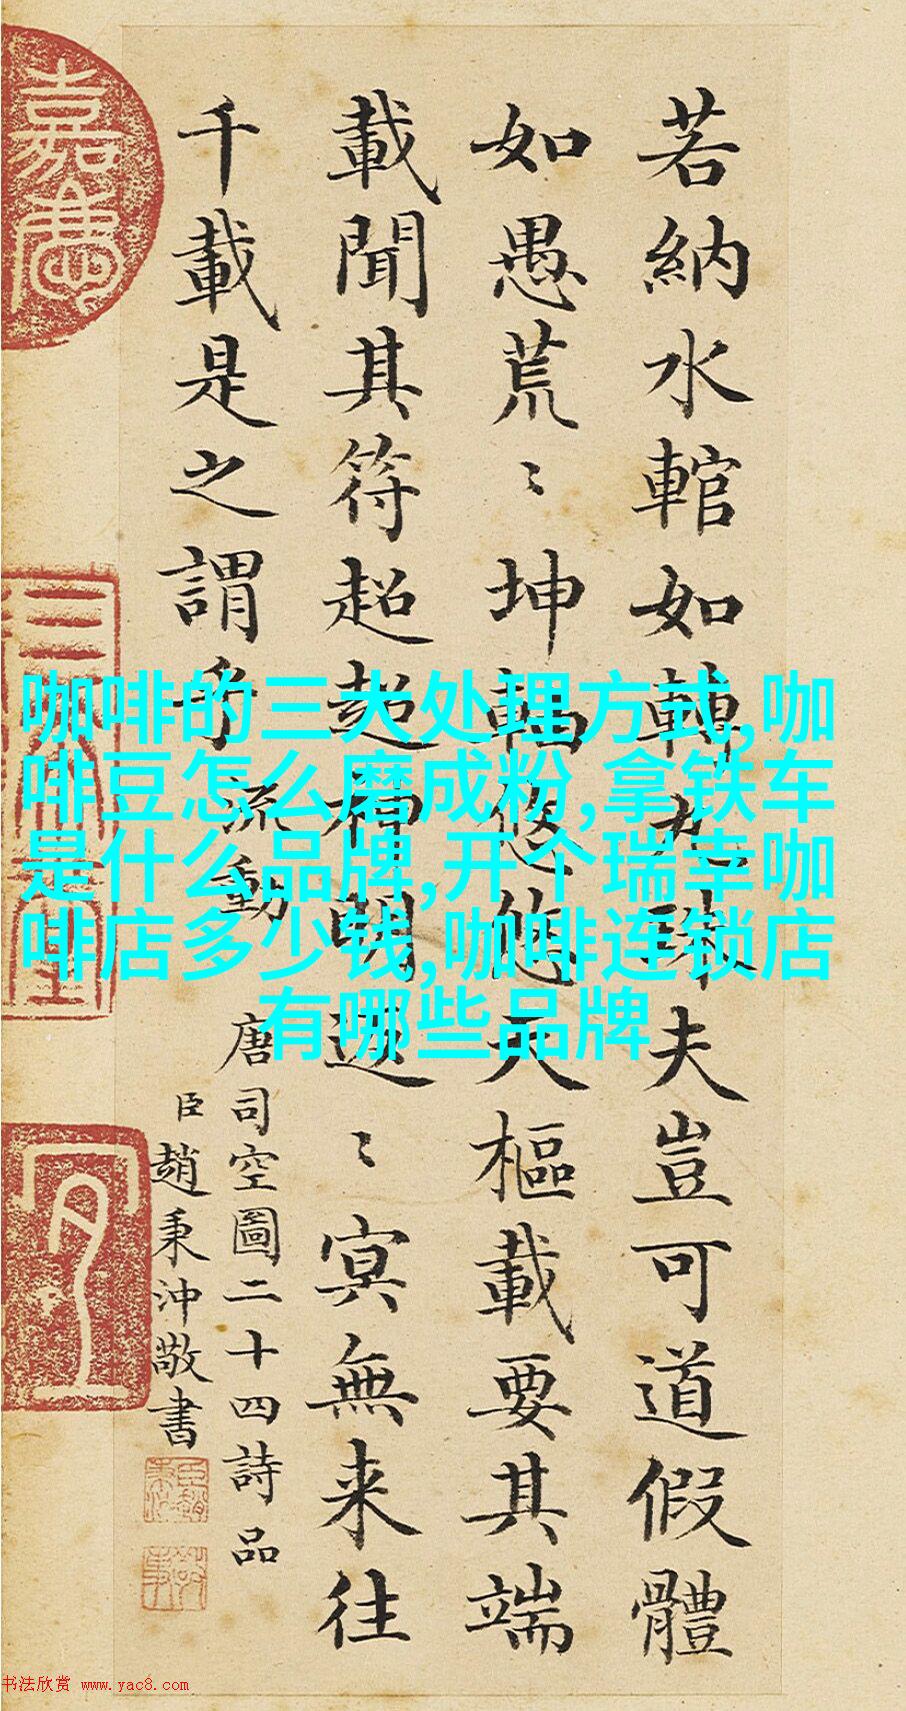 若納水輨如轉丸珠夫豈可道假體
如愚荒〻坤軸悠悠天樞載要其端
載聞其符超超神明返〻冥無来往
千載是之謂乎 流動
唐司空圖二十四詩品
臣趙秉沖敬書
嘉慶
咖啡的三大处理方式,咖
啡豆怎么磨成粉,拿铁车
是什么品牌,开个瑞幸咖
啡店多少钱,咖啡连锁店
有哪些品牌
书法欣赏 www.yac8.com